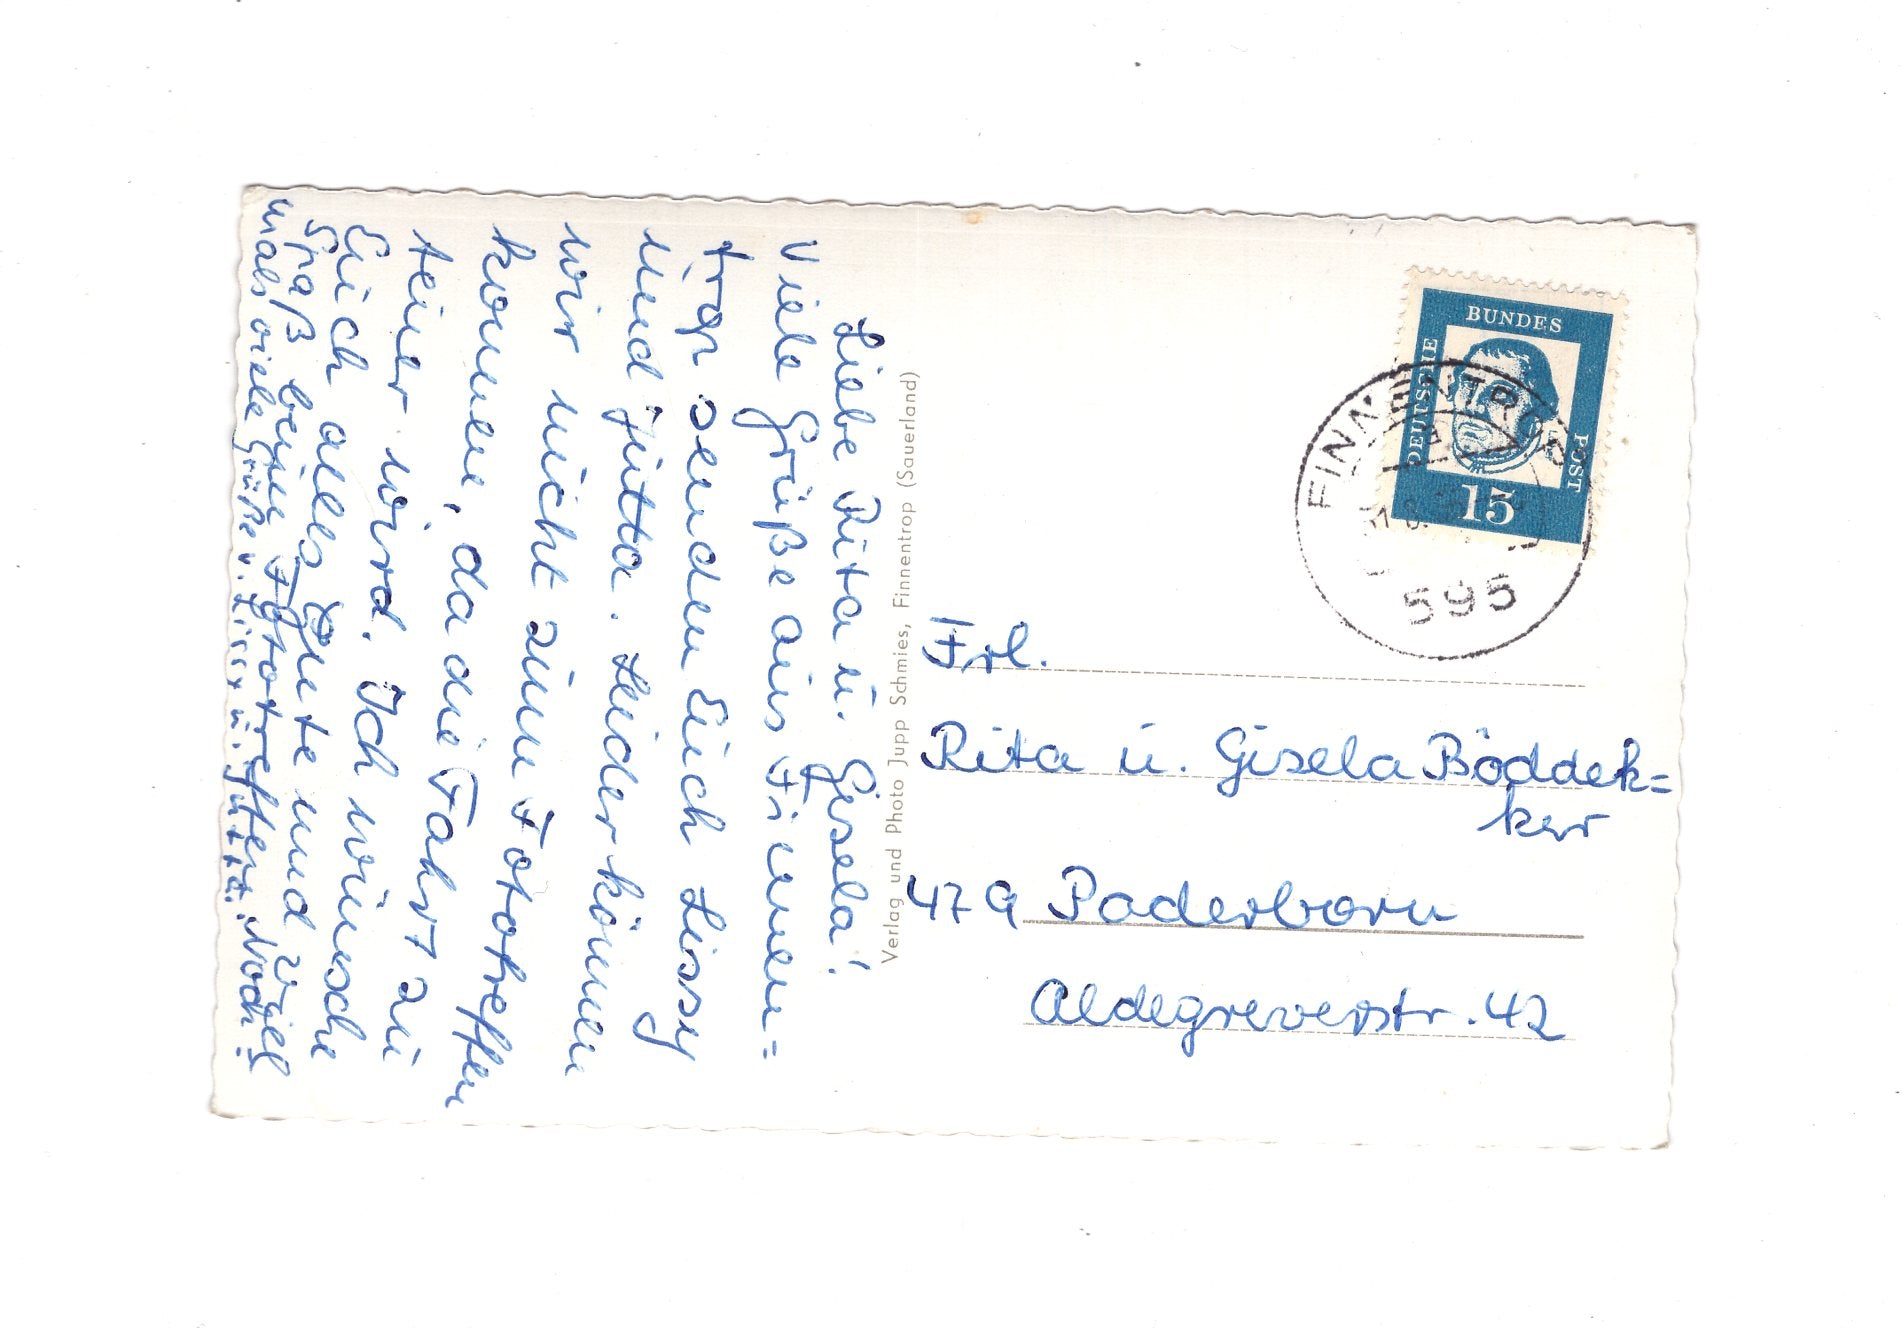 Liebe Rita u. Gisela!
Viele Grüße aus Finnen=
trop senden Euch Lissy
und Jutta. Leider können
wir nicht zum Fototreffen
kommen, da die Fahrt zu
teuer wird. Ich wünsche
Euch alles Gute und viel
Spaß beim Fototreffen. Noch=
mals viele Grüße v. Lissy u. Jutta.
Verlag und Photo Jupp Schmies, Finnentrop (Sauerland)
BUNDES
DEUTSCHE
POST
15
FINNENTROP
595
Frl.
Rita u. Gisela Böddek=
ker
479 Paderborn
Aldegreverstr. 42